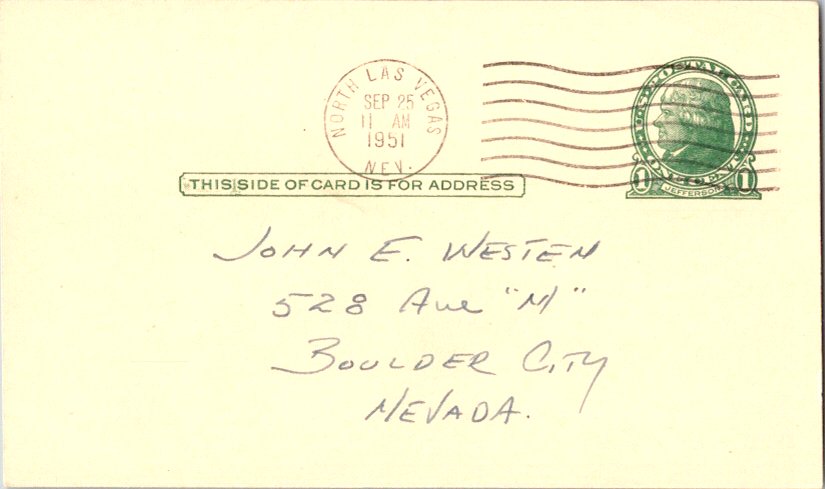 NORTH LAS VEGAS
SEP 25
11 AM
1951
NEV.
U·S·POSTAL CARD
ONE CENT
1 JEFFERSON 1
THIS SIDE OF CARD IS FOR ADDRESS
JOHN E. WESTEN
528 Ave "M"
BOULDER CITY
NEVADA.